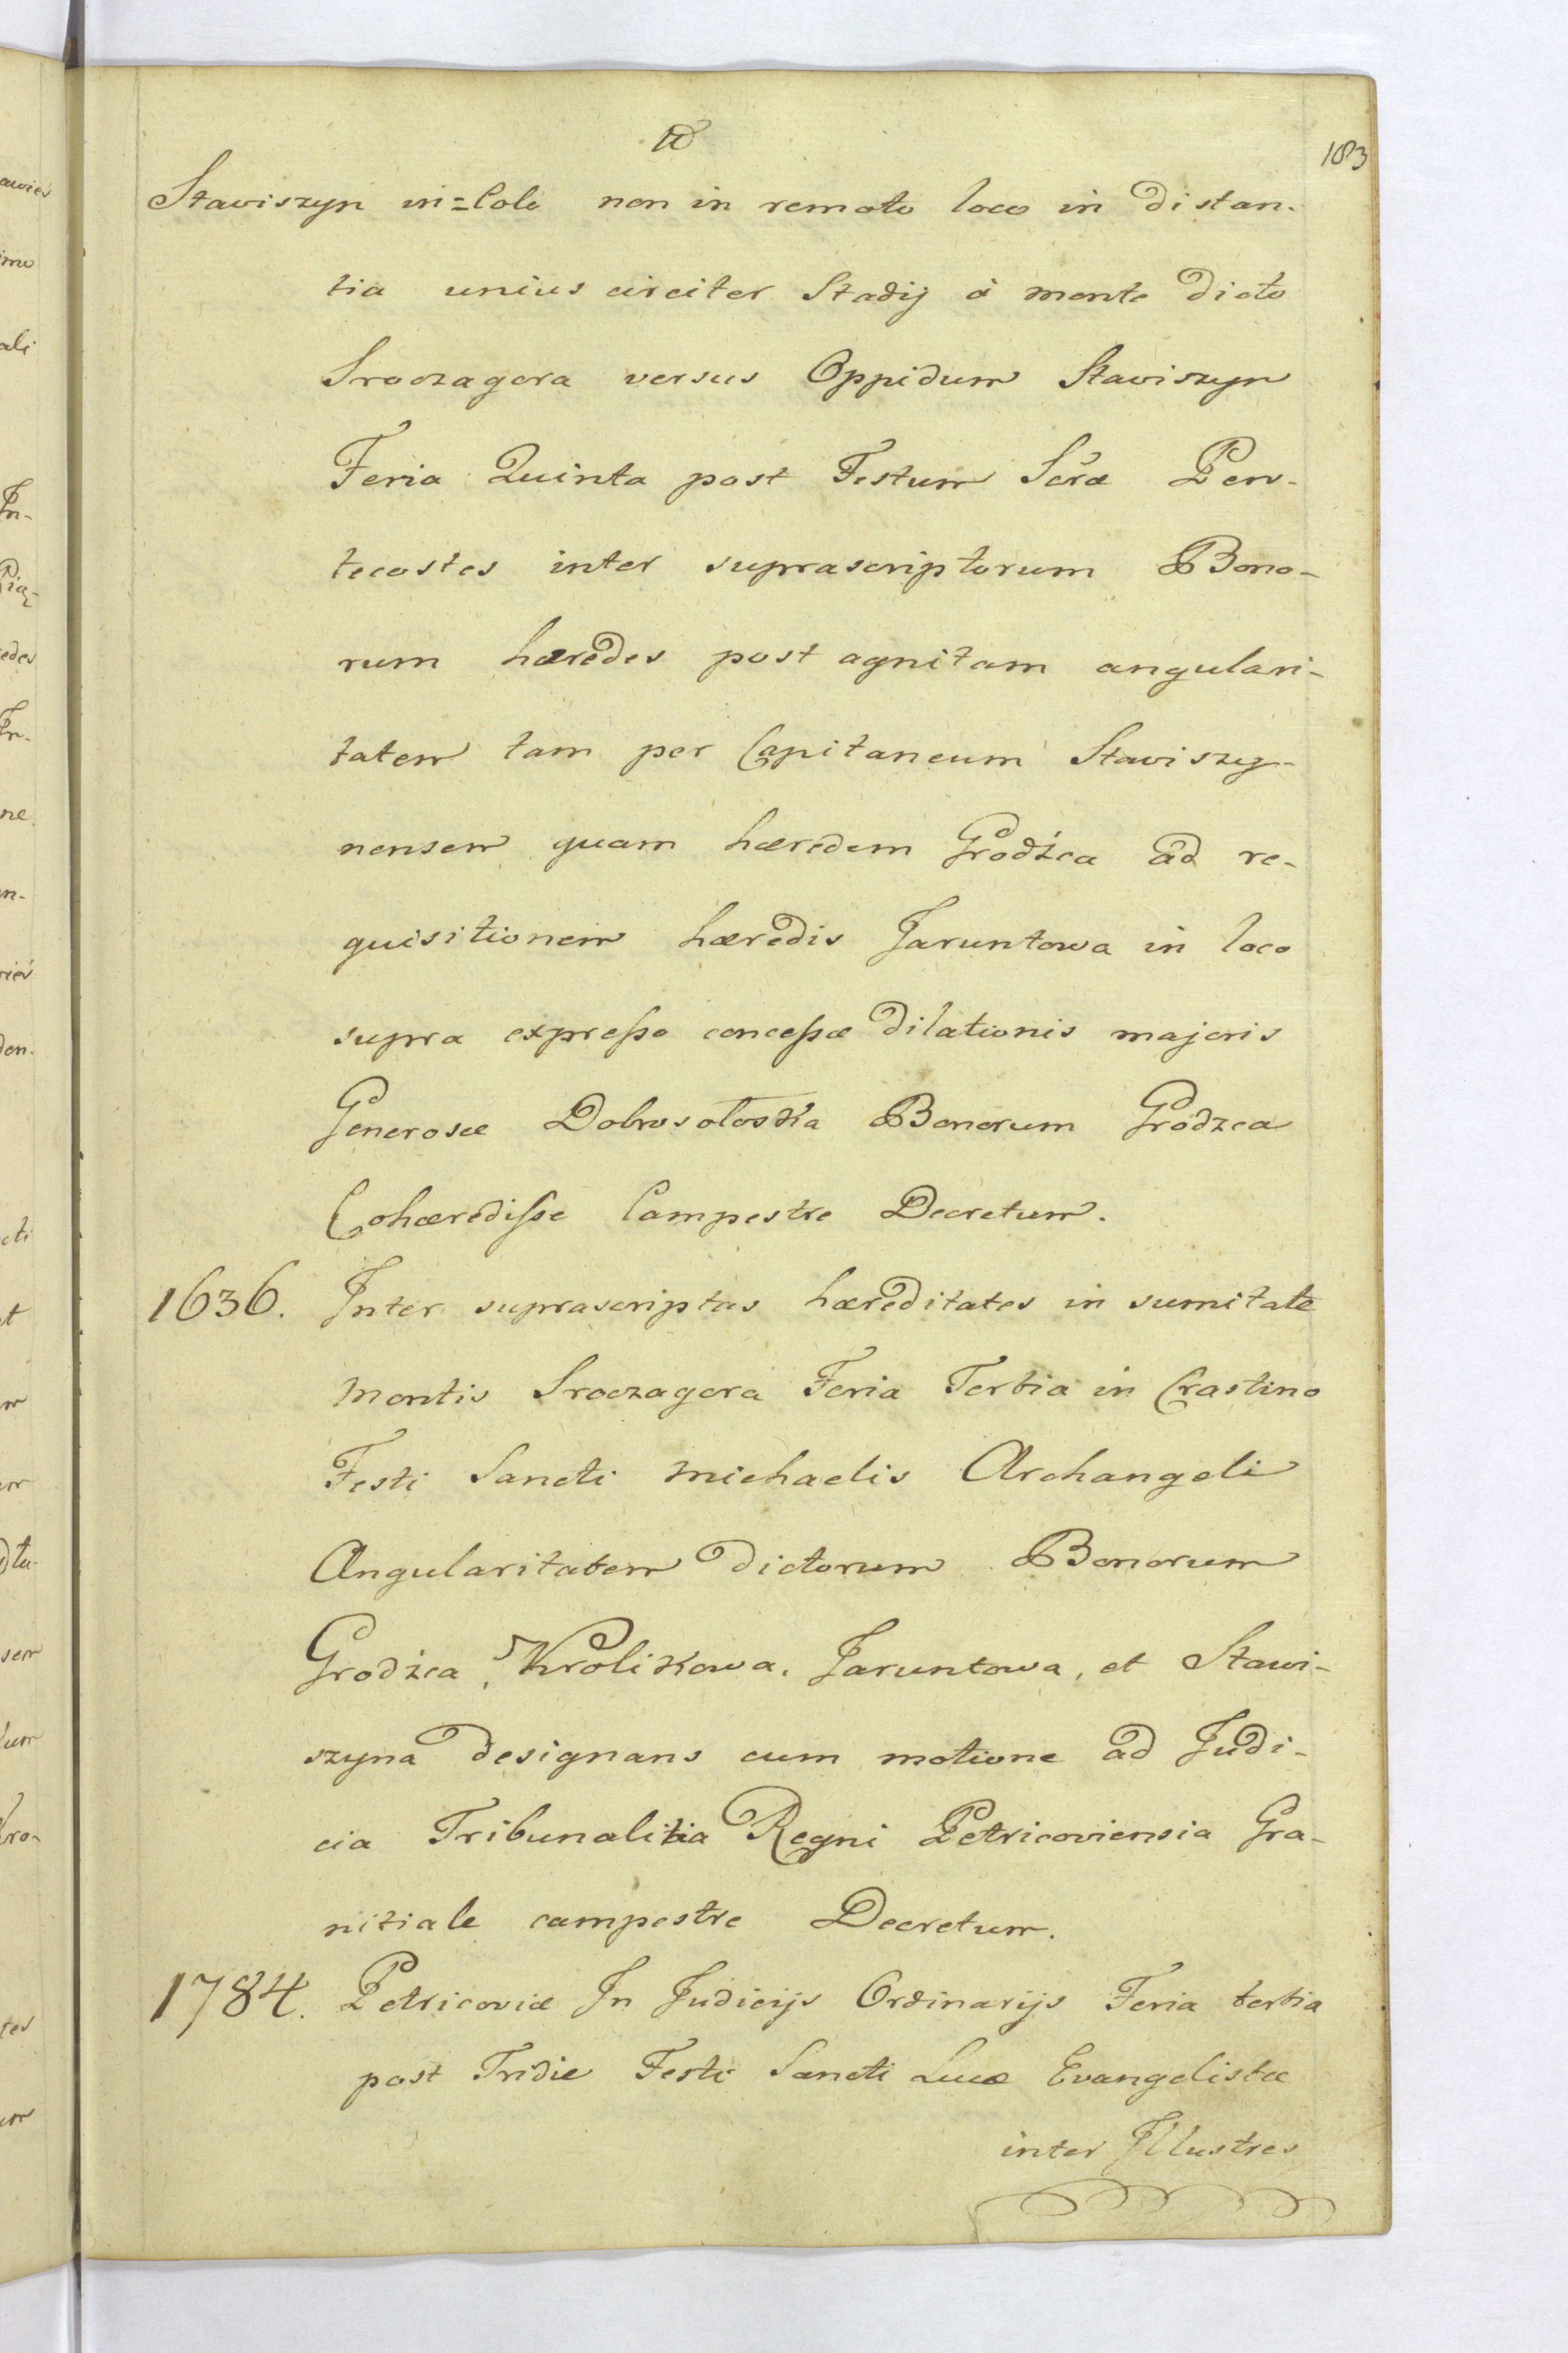 1083
Stawiszyn in=Colo non in remoto loco in distan-
tia unius circiter Stadij à monte dicto
Sroczagora versus Oppidum Stawiszyn
Feria Quinta post Festum Scræ Pen-
tecostes inter suprascriptorum Bono-
rum hæredes post agnitam angulari-
tatem tam per Capitaneum Stawiszy-
nensem quam hæredem Grodźca ad re-
quisitionem hæredis Jaruntowa in loco
supra expresso concessæ dilationis majoris
Generosæ Dobrosołoska Bonorum Grodzca
Cohæredisse Campestre Decretum.
1636. Inter suprascriptas hæreditates in sumitate
Montis Sroczagora Feria Tertia in Crastino
Festi Sancti Michaelis Archangeli
Angularitatem dictorum Bonorum
Grodźca, Krolikowa, Jaruntowa, et Stawi-
szyna designans cum motione ad Judi-
cia Tribunalitia Regni Petricoviensia Gra-
nitiale campestre Decretum.
1784. Petricoviæ In Judicijs Ordinarijs Feria tertia
post Tridie Festi Sancti Lucæ Evangelistæ
inter Illustres